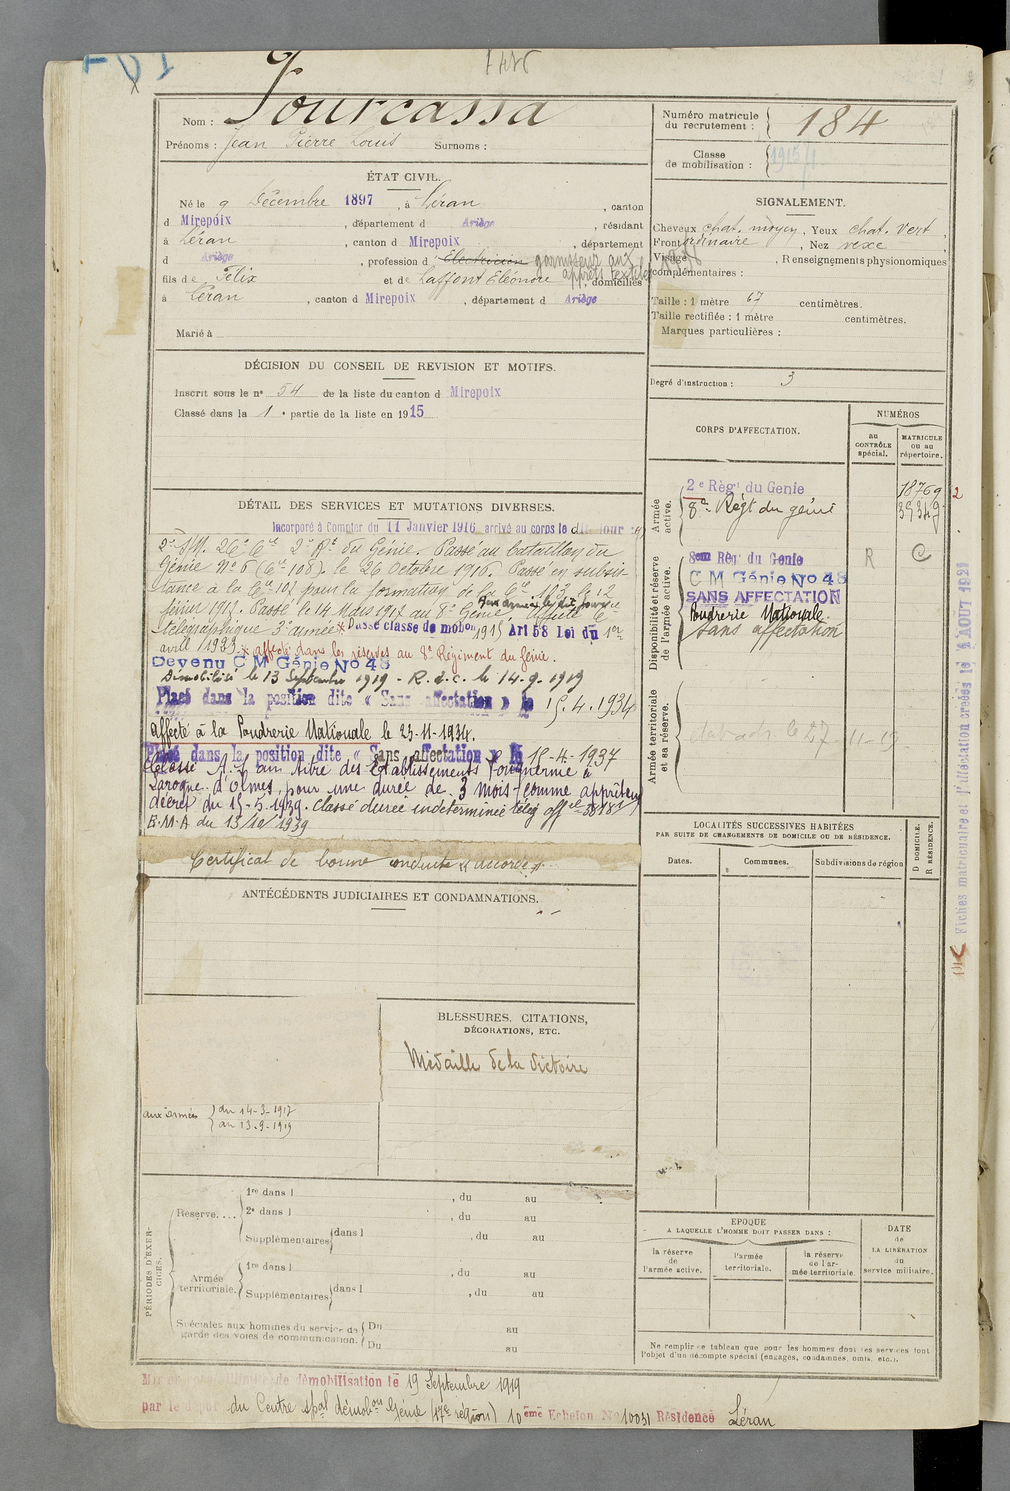 Nom : Fourcassa
Prénoms : Jean Pierre Louis Surnoms :
Numéro matricule du recrutement : 184
Classe de mobilisation : 1915
ÉTAT CIVIL.
Né le 9 Décembre 1897, à Léran, canton
d Mirepoix, département d Ariège, résidant
à Léran, canton d Mirepoix, département
d Ariège, profession d Electricien
fils de Félix et de Laffont Eléonore, domiciliés
à Léran, canton d Mirepoix, département d Ariège
Marié à
SIGNALEMENT.
Cheveux chat. moyen, Yeux chat. vert,
Front ordinaire, Nez vexe
Visage, Renseignements physionomiques
complémentaires :
Taille : 1 mètre 67 centimètres.
Taille rectifiée : 1 mètre centimètres.
Marques particulières :
Degré d'instruction : 3
DÉCISION DU CONSEIL DE REVISION ET MOTIFS.
Inscrit sous le n° 54 de la liste du canton d Mirepoix
Classé dans la 1e partie de la liste en 1915
DÉTAIL DES SERVICES ET MUTATIONS DIVERSES.
Incorporé à Compter du 11 Janvier 1916, arrivé au corps le dit jour
2e S/M. 26e Cie 2e Rt du Génie. Passé au bataillon du
Génie No 6 (Cie 108) le 26 Octobre 1916. Passé en subsis-
tance à la Cie 102 pour la formation de la Cie 1/3 le 12
février 1917. Passé le 14 Mars 1917 au 8e Génie, affecté Cie
télégraphique 3e armée Passé classe de mobon 1915 Art 58 Loi du 1er
avril 1923. affecté dans les réserves au 8e Régiment du Génie.
Devenu C M Génie No 48
Démobilisé le 13 Septembre 1919 - R.d.c. le 14-9-1919
Placé dans la position dite « Sans affectation » le 15.4.1934
Affecté à la Poudrerie Nationale le 23-11-1934.
Placé dans la position dite « Sans affectation » le 15-4-1937
Classé A.S au titre des Etablissements Fonquernie à
Laroque d'Olmes, pour une durée de 3 mois comme apprêteur
décret du 15-5-1939. Classé durée indéterminée télég offel
E.M.A du 13/10/1939
Certificat de bonne conduite « accordé ».
CORPS D'AFFECTATION.
NUMÉROS
au CONTRÔLE spécial.
MATRICULE ou au répertoire.
Armée active.
2e Régt du Genie 18769
8e Régt du génie
Disponibilité et réserve de l'armée active.
8em Régt du Genie R C
C M Génie No 48
SANS AFFECTATION
Poudrerie Nationale
Sans affectation
Armée territoriale et sa réserve.
Fiches matriculaire et d'affectation créées le AOUT 1921
LOCALITÉS SUCCESSIVES HABITÉES
PAR SUITE DE CHANGEMENTS DE DOMICILE OU DE RÉSIDENCE.
Dates. Communes. Subdivisions de région
D DOMICILE. R RÉSIDENCE.
ANTÉCÉDENTS JUDICIAIRES ET CONDAMNATIONS.
BLESSURES, CITATIONS,
DÉCORATIONS, ETC.
Médaille de la Victoire
aux armées du 14-3-1917
au 13-9-1919
PÉRIODES D'EXERCICES.
Réserve....
1re dans l , du au
2e dans l , du au
Supplémentaires dans l , du au
Armée territoriale.
1re dans l , du au
Supplémentaires dans l , du au
Spéciales aux hommes du service de
garde des voies de communication.
Du au
Du au
EPOQUE
A LAQUELLE L'HOMME DOIT PASSER DANS :
la réserve de l'armée active.
l'armée territoriale.
la réserve de l'armée territoriale
DATE de LA LIBÉRATION du service militaire.
Ne remplir ce tableau que pour les hommes dont les services font
l'objet d'un décompte spécial (engagés, condamnés, omis, etc.).
Mis en congé illimité de démobilisation le 19 Septembre 1919
par le dépôt du Centre spal démobon Génie (17e région) 10ème Echelon No 10031 Résidence Léran